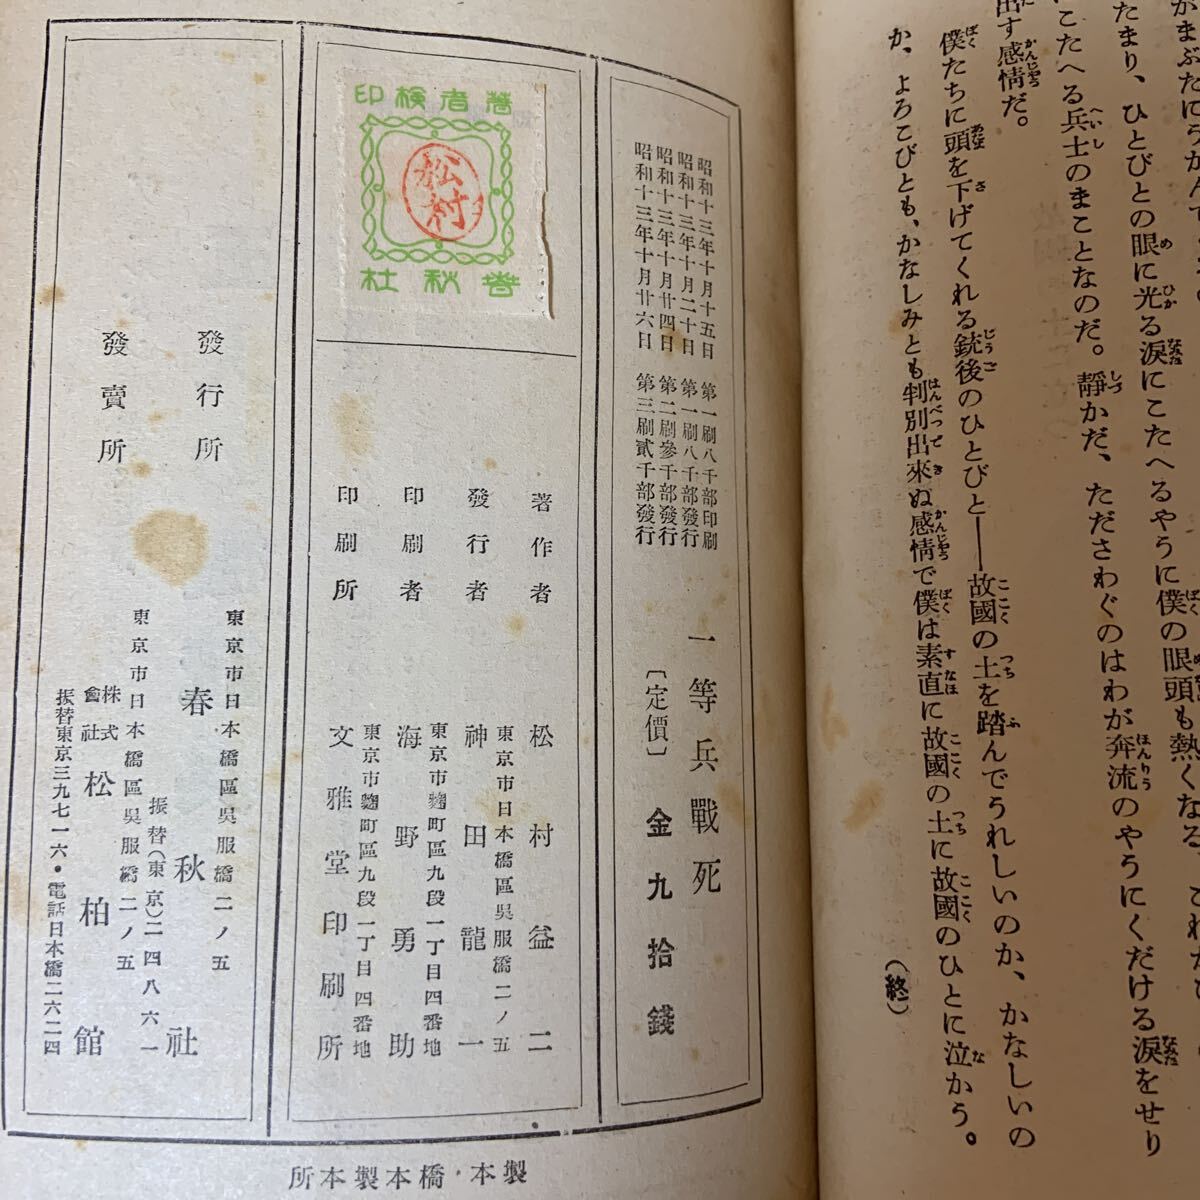 たまり、ひとびとの眼に光る涙にこたへるやうに僕の眼頭も熱くなる。これが
にこたへる兵士のまことなのだ。靜かだ、たださわぐのはわが奔流のやうにくだける涙をせり
出す感情だ。
僕たちに頭を下げてくれる銃後のひとびと——故國の土を踏んでうれしいのか、かなしいの
か、よろこびとも、かなしみとも判別出來ぬ感情で僕は素直に故國の土に故國のひとに泣かう。
(終)
昭和十三年十月十五日 第一刷八千部印刷
昭和十三年十月二十日 第一刷八千部發行
昭和十三年十月廿四日 第二刷參千部發行
昭和十三年十月廿六日 第三刷貳千部發行
一等兵戰死
〔定價〕 金九拾錢
著者檢印
松村
春秋社
著作者 松村益二
東京市日本橋區吳服橋二ノ五
發行者 神田龍一
東京市麴町區九段一丁目四番地
印刷者 海野勇助
東京市麴町區九段一丁目四番地
印刷所 文雅堂印刷所
東京市日本橋區吳服橋二ノ五
發行所 春秋社
振替(東京)二四八六一
東京市日本橋區吳服橋二ノ五
發賣所 株式會社 松柏館
振替東京三九七一六・電話日本橋二六二四
製本・橋本製本所